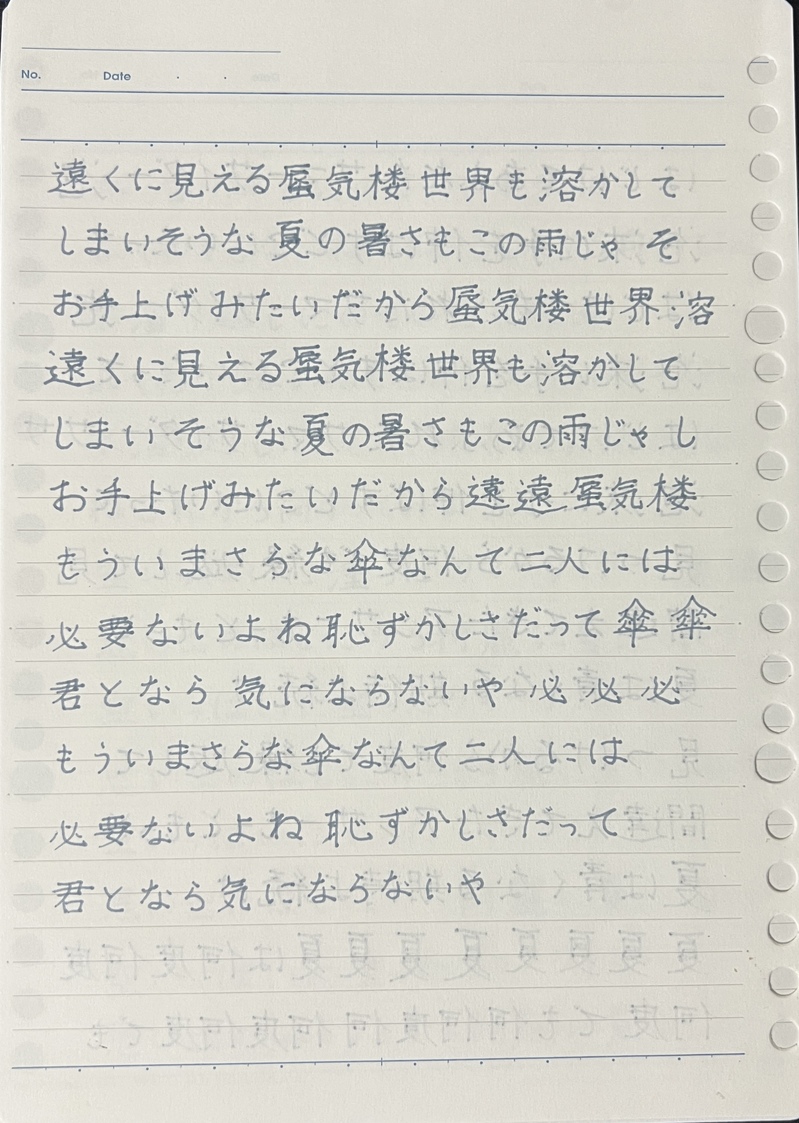 No. Date
遠くに見える蜃気楼世界も溶かして
しまいそうな夏の暑さもこの雨じゃ そ
お手上げみたいだから蜃気楼世界溶
遠くに見える蜃気楼世界も溶かして
しまいそうな夏の暑さもこの雨じゃ し
お手上げみたいだから遠遠蜃気楼
もういまさらな傘なんて二人には
必要ないよね恥ずかしさだって傘傘
君となら気にならないや必必必
もういまさらな傘なんて二人には
必要ないよね恥ずかしさだって
君となら気にならないや